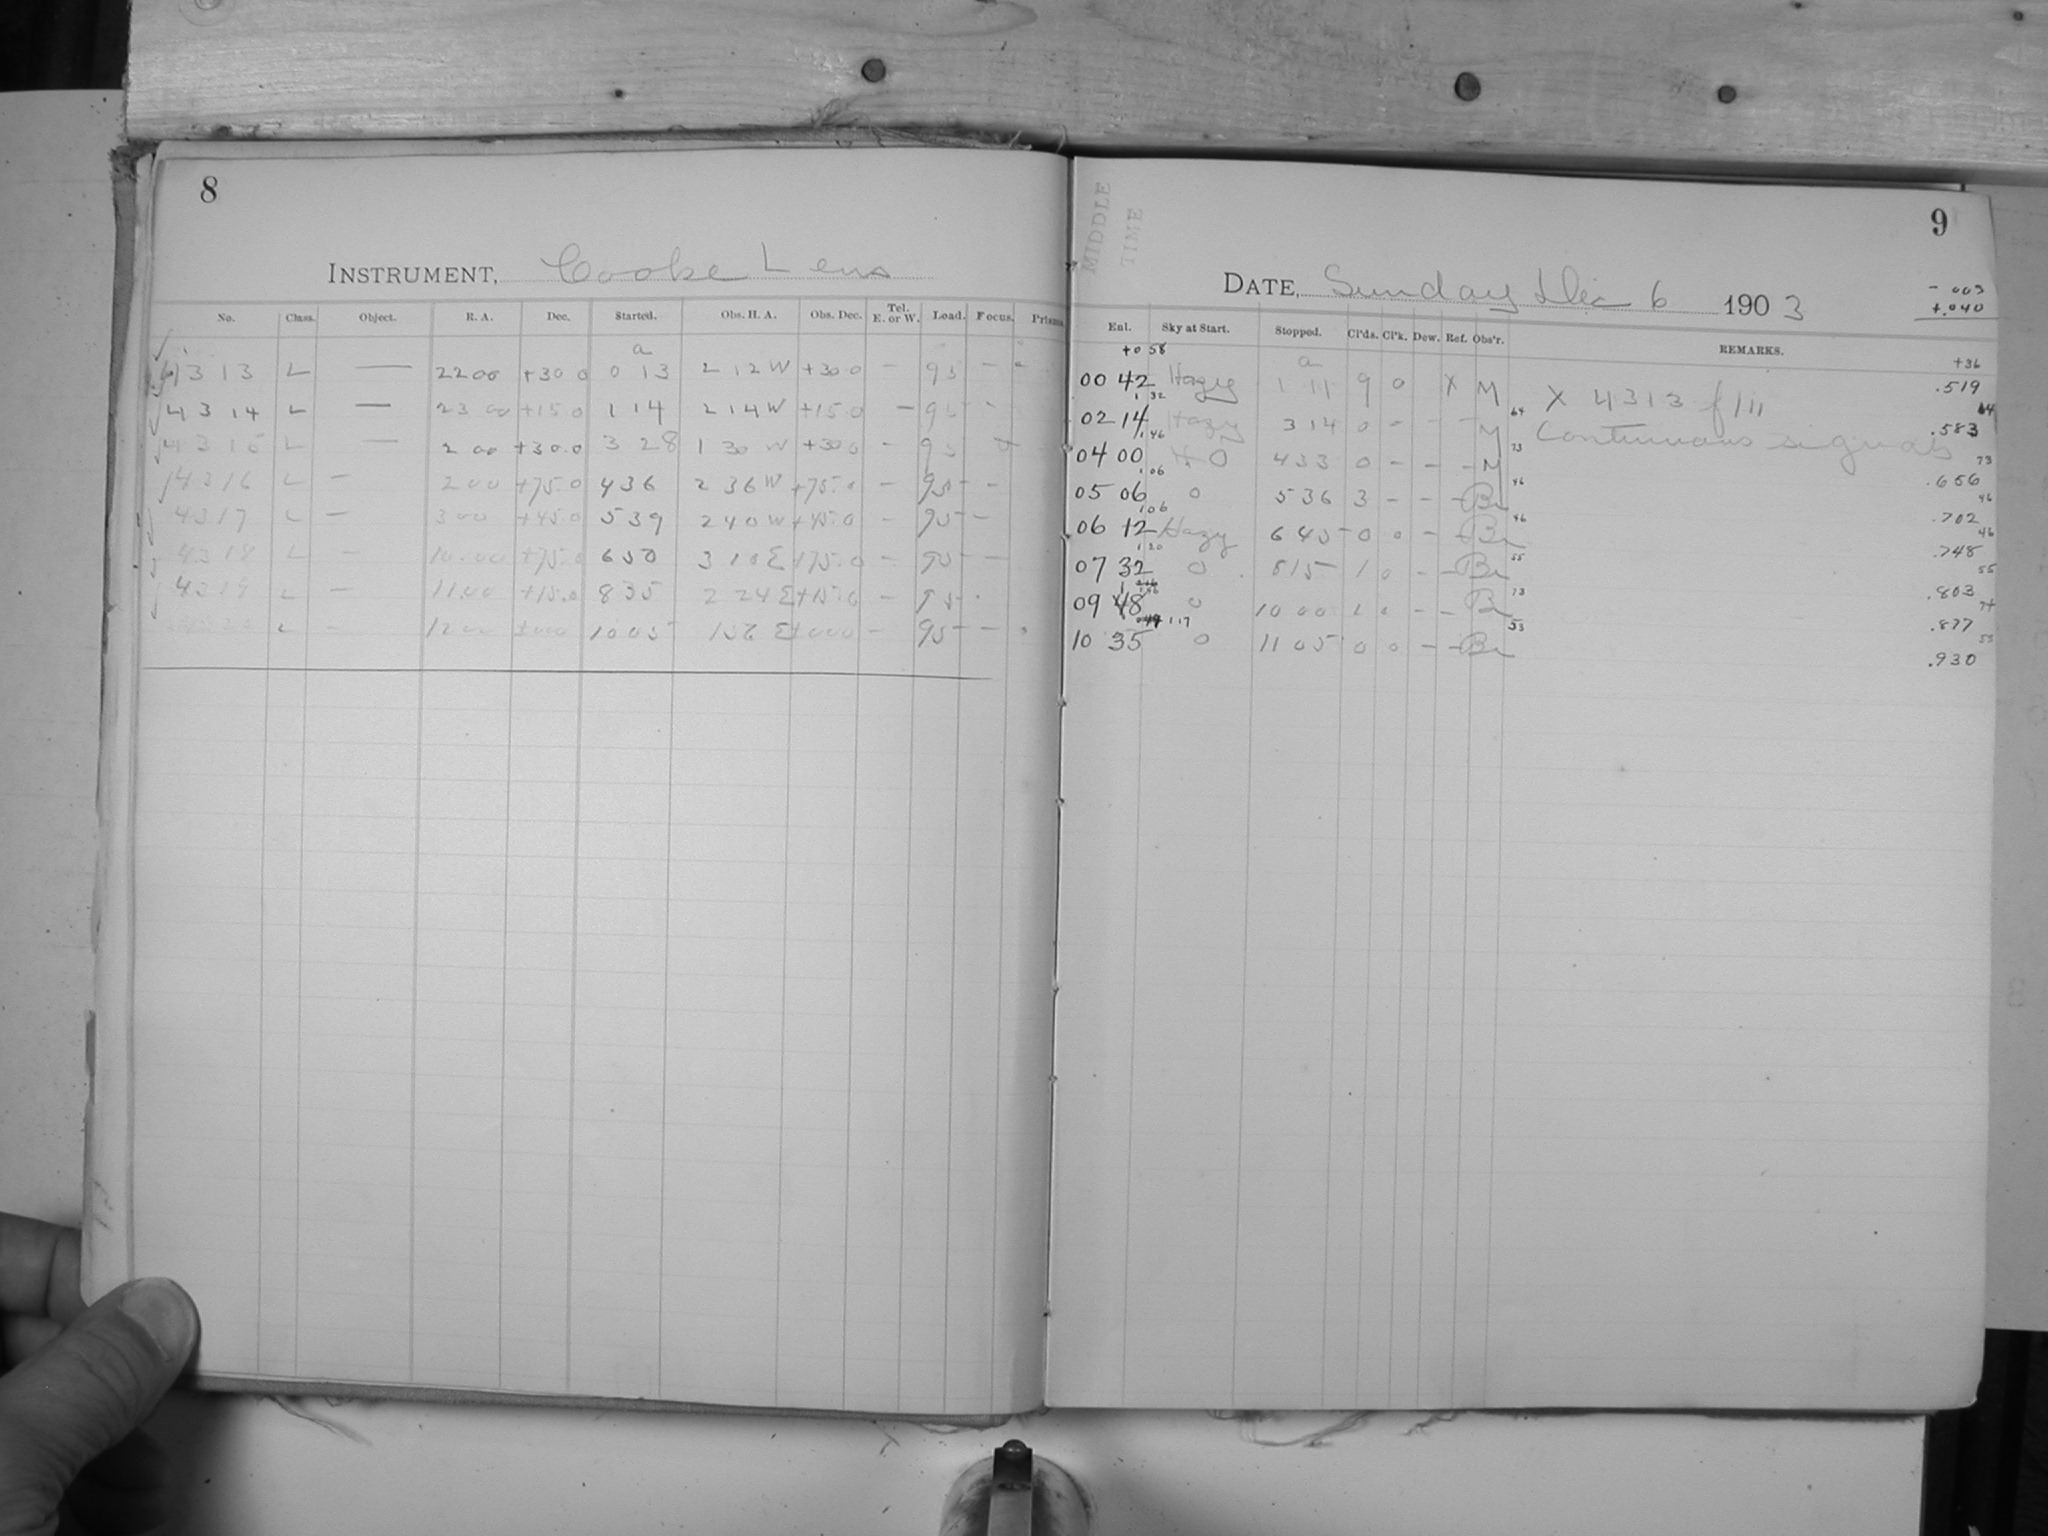 8
INSTRUMENT, Cooke Lens
No. Class. Object. R. A. Dec. Started. Obs. H. A. Obs. Dec. Tel. E. or W. Load. Focus. Prisms.
a
4313 L — 22 00 +30 0 0 13 2 12 W +30 0 — 95 —
4314 L — 23 00 +15 0 1 14 2 14 W +15 0 — 95 —
4315 L — 2 00 +30.0 3 28 1 30 W +30 0 — 95
4316 L — 2 00 +75.0 4 36 2 36 W +75.0 — 95 —
4317 L — 3 00 +45.0 5 39 2 40 W +45.0 — 95 —
4318 L — 10.00 +75.0 6 50 3 10 E +75.0 — 95 —
4319 L — 11.00 +15.0 8 35 2 24 E +15.0 — 95
L 12 00 +00 0 10 05 1 56 E +00 0 — 95 —
MIDDLE
TIME
9
DATE, Sunday Dec 6 1903
- 003
+.040
Enl. Sky at Start. Stopped. Cl'ds. Cl'k. Dew. Ref. Obs'r. REMARKS.
+0 58 a +36
00 42 Hazy 1 11 9 0 X M X 4313 f .519
1 32 64 64
02 14 Hazy 3 14 0 - - - M Continuous signals .583
1 46 73 73
04 00 H O 4 33 0 - - - M .656
1 06 46 46
05 06 0 5 36 3 - - - Br .702
1 06 46 46
06 12 Hazy 6 45 0 0 - - Br .748
1 20 55 55
07 32 0 8 15 1 0 - - Br .803
1 46 73 74
09 48 0 10 00 1 0 - - Br .877
1 17 53 53
10 35 0 11 05 0 0 - - Br .930